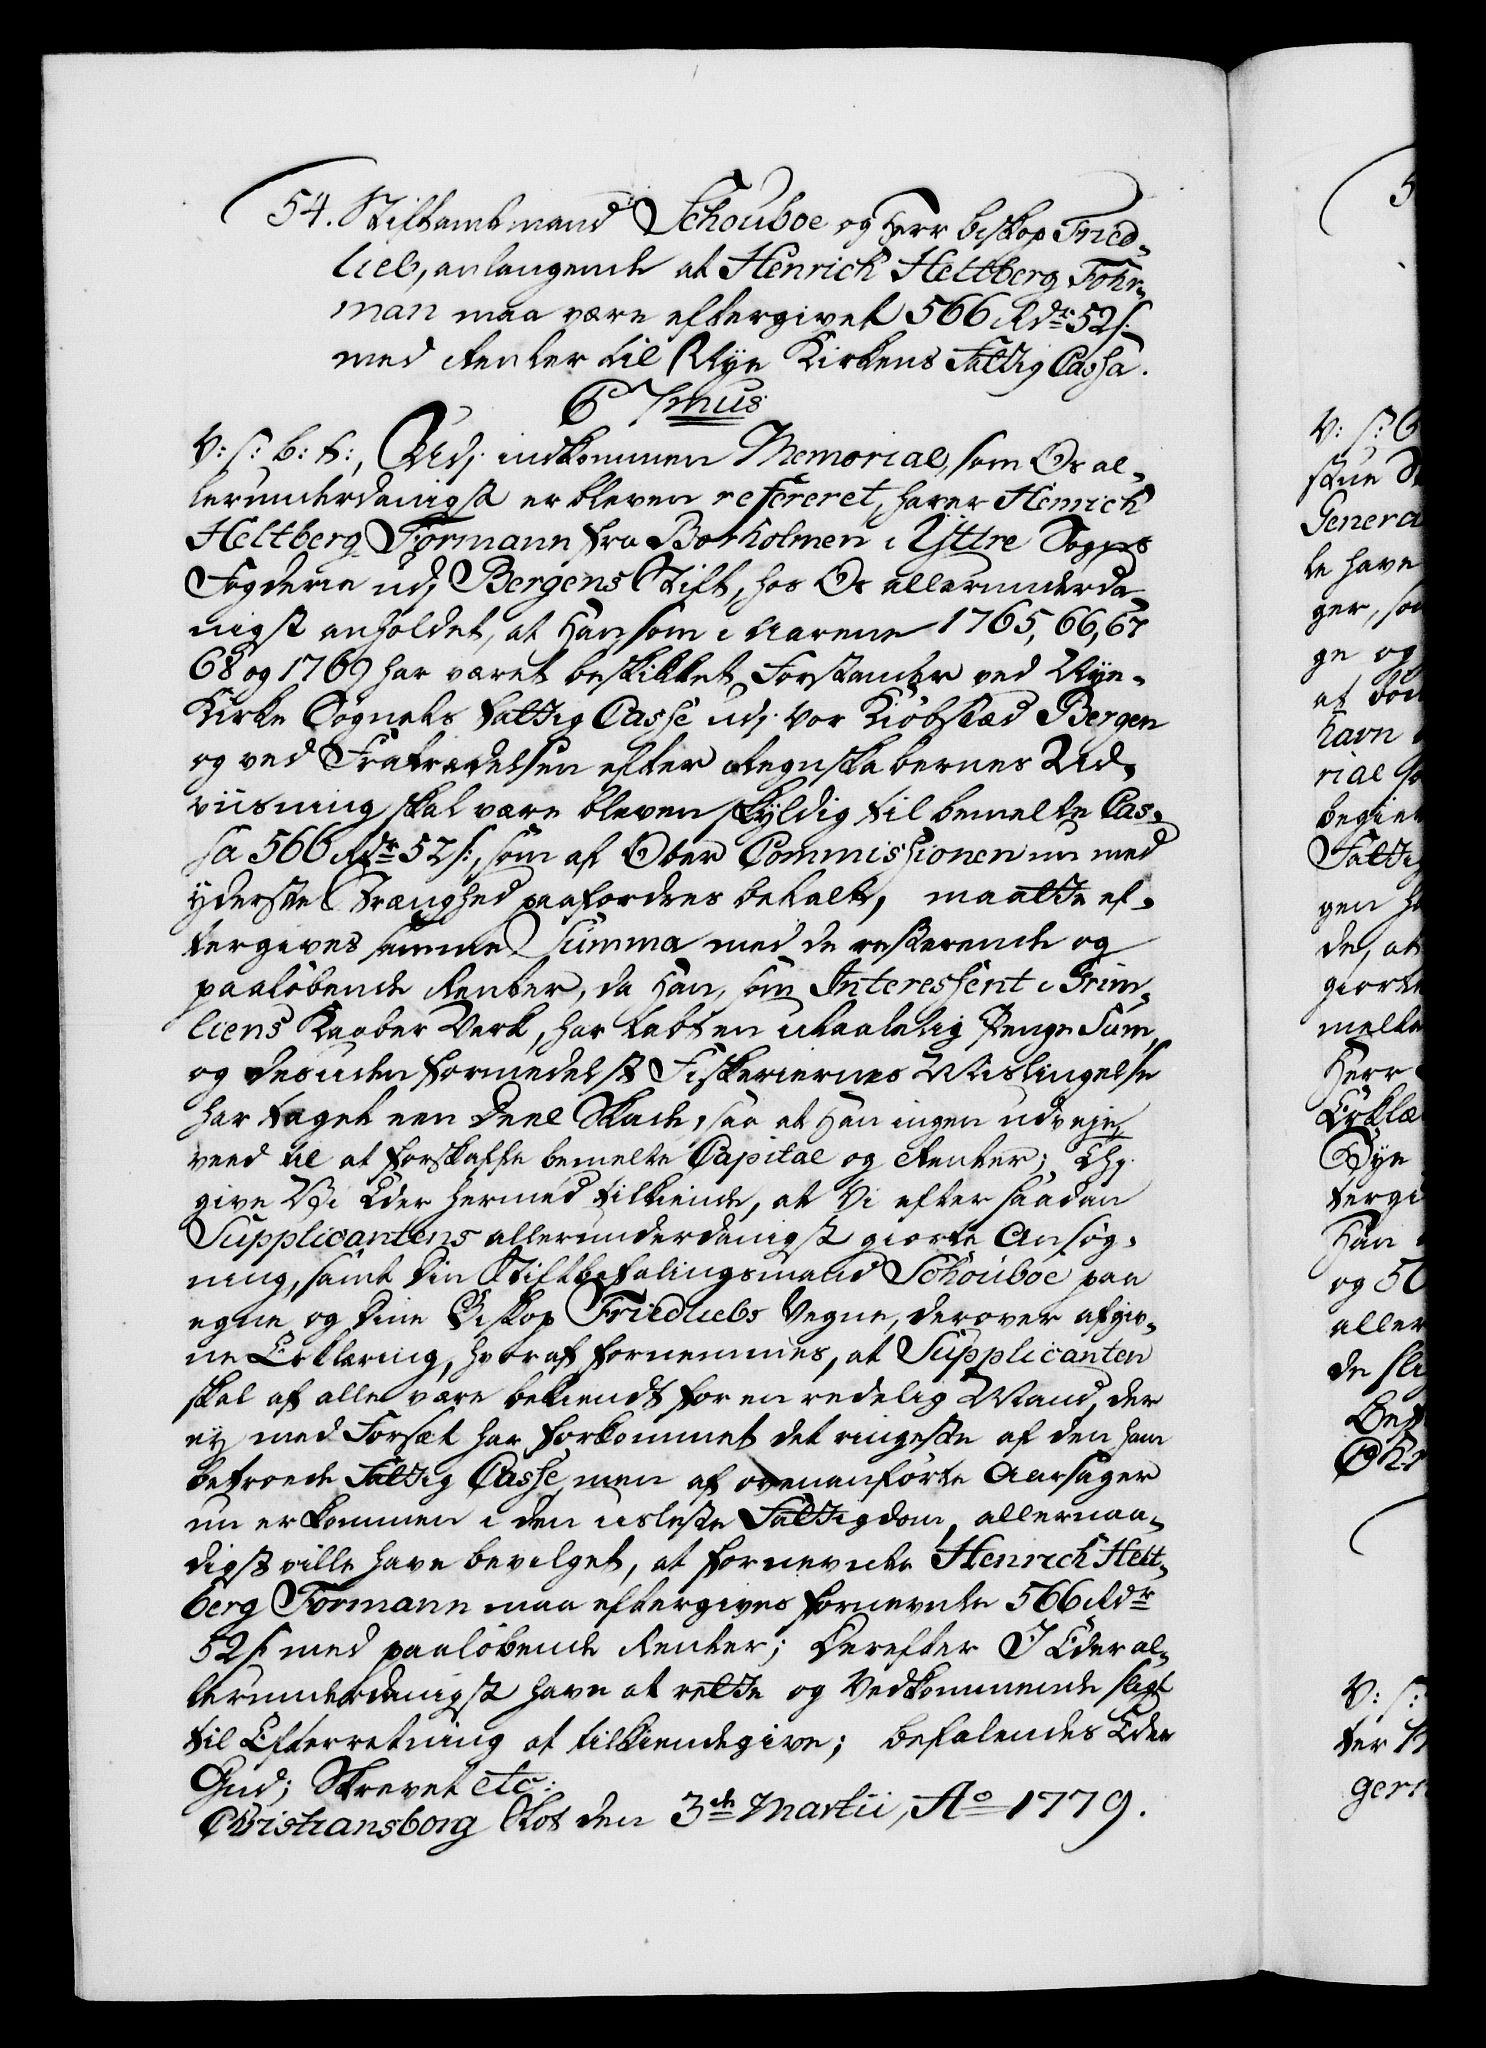 54. Stiftamtmand Schouboe og Herr biskop Fried-
lieb, anlangende at Henrich Heltberg Fohr-
man maa være eftergivet 566 Rdr 52 s:
med Renter til Nye Kirkens Fattig Cassa.
C 7mus
V: S: B: T:, Udj indkommen Memorial, som Os al-
lerunderdanigst er bleven refereret, haver Henrich
Heltberg Formann fra Borholmen i Yttre Sogns
Fogderie udj Bergens Stift, hos Os allerunderda-
nigst anholdet, at Han, som i Aarene 1765, 66, 67
68 og 1769 har været beskikket Forstander ved Nye-
Kirke Sognets Fattig Casse udj Vor Kiøbstæd Bergen
og ved Fratrædelsen efter Regnskabernes Ud-
viisning skal være bleven skyldig til bemelte Cas-
sa 566 Rdr 52 s:, som af Ober Commissionen nu med
yderste Strænghed paafordres betalt, maatte ef-
tergives samme Summa med de resterende og
paaløbende Renter, da Han, som Interessent i Grim-
liens Kaaber Verk, har tabt en utaalelig Penge Sum,
og desuden formedelst Fiskeriernes Mislingelse
har taget een Deel Skade, saa at Han ingen udveje
veed til at forskaffe bemelte Capital og Renter; Thj
give Vi Eder hermed tilkiende, at Vi efter saadan
Supplicantens allerunderdanigst giorte Ansøg-
ning, samt Din Stiftbefalingsmand Schouboe paa
egne og Dine Biskop Friedliebs Vegne, derover afgiv-
ne Erklæring, hvoraf fornemmes, at Supplicanten
skal af alle være bekiendt for en redelig Mand, der
ej med Forsæt har forkommet det ringeste af den ham
betroede Fattig Casse, men af ovenanførte Aarsager
nu er kommen i den usleste Fattigdom, allernaa-
digst ville have bevilget, at fornevnte Henrich Helt-
berg Formann maa eftergives fornevnte 566 Rdr
52 s: med paaløbende Renter; Derefter I Eder al-
lerunderdanigst have at rette og Vedkommende sligt
til Efterretning at tilkiendegive; Befalendes Eder
Gud; Skrevet etc:
Christiansborg Slot den 3de Martii, Ao 1779.